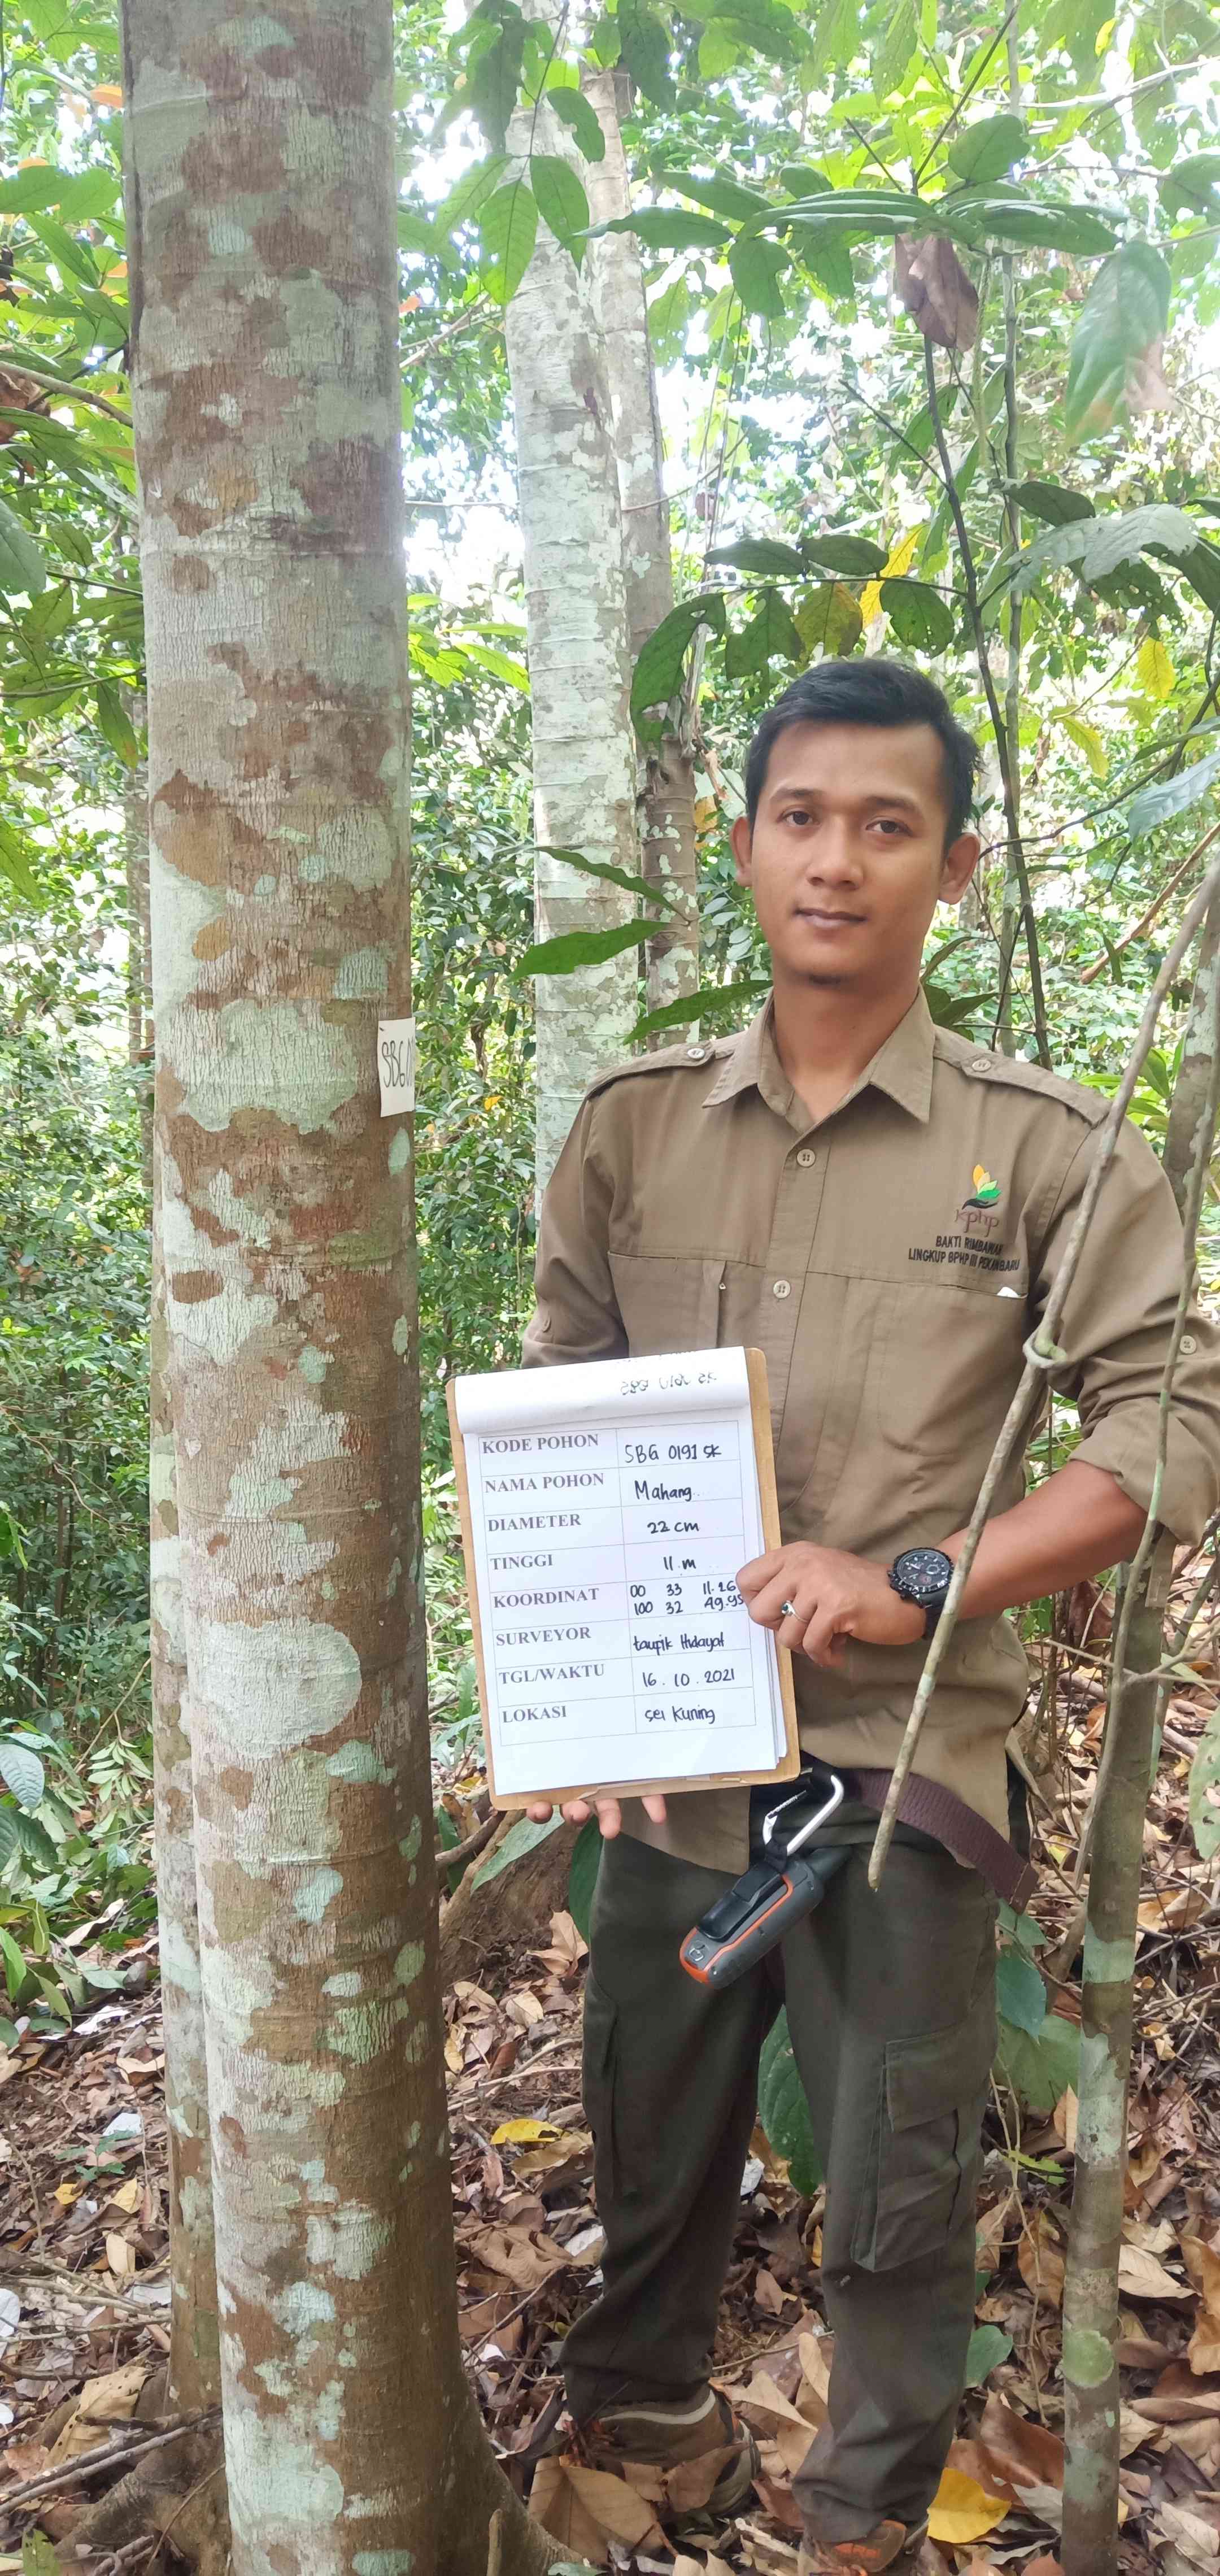 SBG
kphp
BAKTI RIMBAWAN
LINGKUP BPHP III PEKANBARU
KODE POHON SBG 0191 SK
NAMA POHON Mahang
DIAMETER 22 cm
TINGGI 11 m
KOORDINAT 00 33 11.26
100 32 49.95
SURVEYOR taupik Hidayat
TGL/WAKTU 16.10.2021
LOKASI sei Kuning